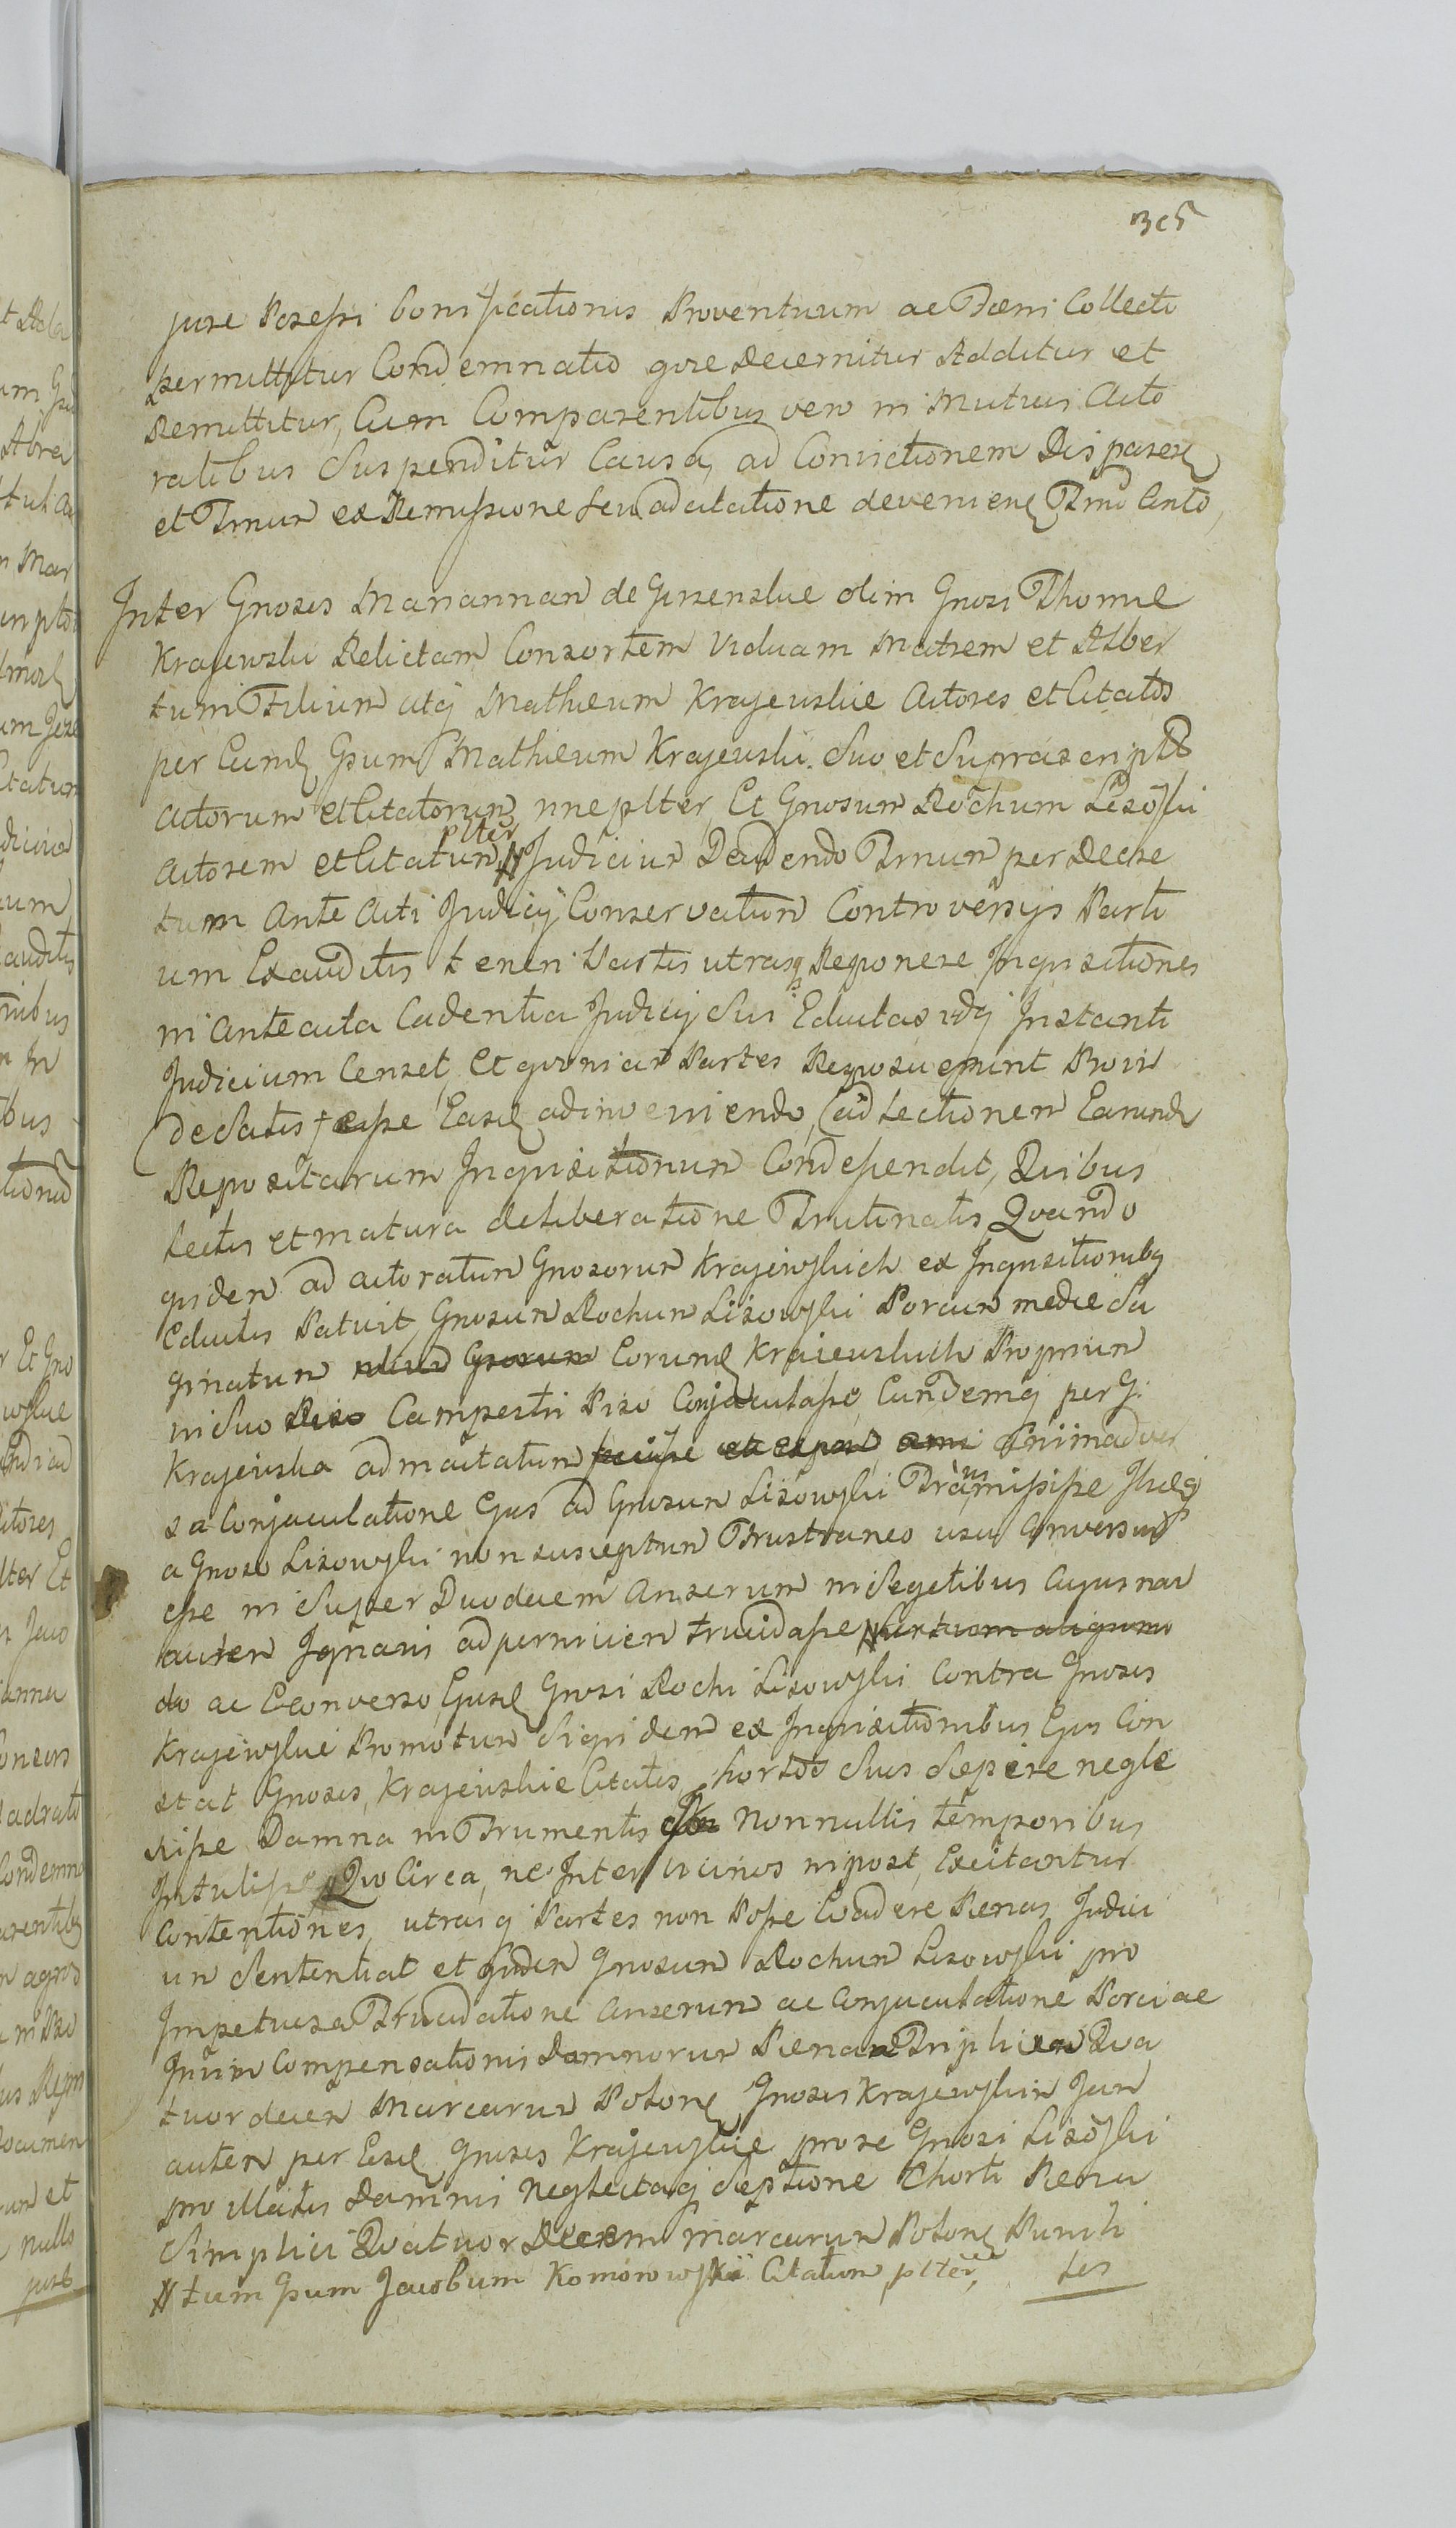 305
jure Possessi bonificationis Proventuum ac Foeni Collecti
permittitur Condemnatio quae decernitur Additur et
Remittitur, Cum Comparentibus vero in Mutuis Acto
ratibus Suspenditur Causa, ad Convictionem Disparen
et Trnum ex Remissione seu adcitatione devenien Trmo Cnto,
Inter Gnosos Mariannam de olim Gnosi Thomae
Krajewski Relictam Consortem Viduam Matrem et Alber
tum Filium atq Mathaeum Krajewskie Actores et Citatos
per Eund Gsum Mathaeum Krajewski Suo et Suprascriptо
Actorum et Citatorum nne plter, Et Gnosum Rochum Lisoski
Actorem et Citatum plter # Judicium Decidendo Trnum per Decre
tum Ante Acti Judicij Conservatum Controversijs Parti
um Exauditis teneri Partes utrasq Reponere Inquisitiones
in anteacta Cadentia Judicij Sui Eductas idq Instanti
Judicium Censet, Et quoniam Partes Reposuerunt Proin
de Satis fecisse Easd adinveniendo, ad Lectionem Earund
Repositarum Inquisitionum Condescendit, Quibus
Lectis et matura deliberatione Trutinatis Quando
quidem ad actoratum Gnosorum Krajewskich ex Inquisitionibq
Eductis Patuit, Gnosum Rochum Lisowski Porcum medie Sa
ginatum Gsorum Eorund Krajewskich Proprium
in Suo Piso Campestri Piso Conjaculasse, Eundemq per G:
Krajewska admactatum Animadver
sa Conjaculatione Ejus ad Gnosum Lisowski Transmisisse
a Gnoso Lisowski non susceptum Frustraneo usui Conversum
esse in Super Duodecim Anserum in Segetibus Cujus nam
autem Ignaris ad perniciem trucidasse
do ac Econverso, Ejusd Gnosi Rochi Lisowski Contra Gnosos
Krajewskie Promotum Siquidem ex Inquisitionibus Ejus Con
stat Gnosos, Krajewskie Citatos, hortos Suos Sepire negle
xisse Damna in Frumentis Nonnullis temporibus
Intulisse, Quo Circa, ne Inter vicinos inpost, Excitentur
Contentiones, utrasq Partes non Posse Evadere Penas Judici
um Sententiat et Eundem Gnosum Rochum Lisowski pro
Impetuosa Trucidatione Anserum ac Conjaculatione Porci ac
Inim Compensationis Damnorum Penam Triplicem Qua
tuordecim Marcarum Polon, Gnosis Krajewskim Jam
autem per Eosd Gnosos Krajewskie prose Gnosi Lisoski
pro illatis damnis Neglectaq Septione Chorti Pena
Simplici Quatuor Decem Marcarum Polon Puniti
# tum Gsum Jacobum Komorowski Citatum plter,
tes